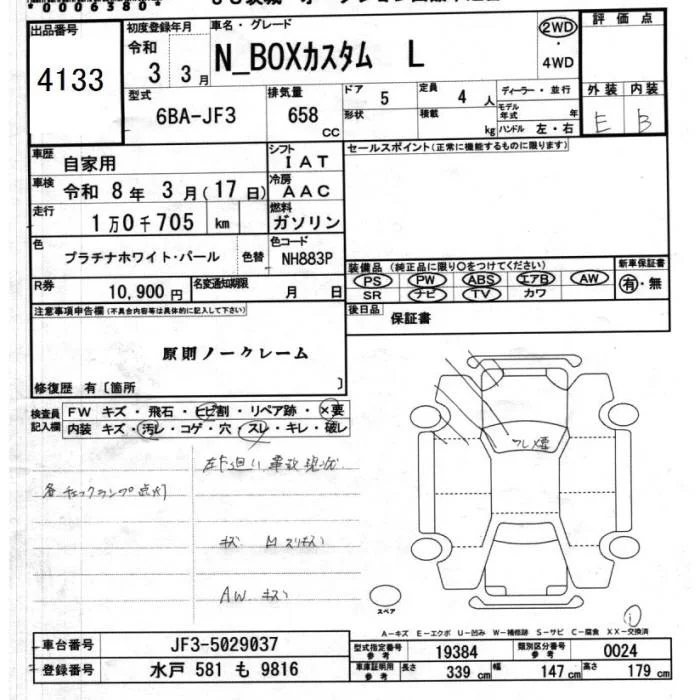 *0006380*
出品番号
4133
初度登録年月
令和
3 3月
車名・グレード
N_BOXカスタム L
2WD
・
4WD
評価点
外装 内装
E B
型式
6BA-JF3
排気量
658
CC
ドア
5
定員
4 人
形状
積載
kg
ディーラー・並行
モデル年式 年
ハンドル 左・右
車歴
自家用
シフト
IAT
車検
令和 8年 3月(17日)
冷房
AAC
走行
1万0千705 km
燃料
ガソリン
色
プラチナホワイト・パール
色替
色コード
NH883P
R券
10,900円
名変通知期限
月 日
セールスポイント(正常に機能するものに限ります)
装備品(純正品に限り○をつけてください)
PS PW ABS エアB AW
SR ナビ TV カワ
新車保証書
有・無
後日品
保証書
注意事項申告欄(不具合内容等は具体的に記入して下さい)
原則ノークレーム
修復歴 有〔箇所 〕
検査員記入欄
FW キズ・飛石・ヒビ割・リペア跡・×要
内装 キズ・汚レ・コゲ・穴・スレ・キレ・破レ
左下廻り 事故現状
各チェックランプ点灯
キズ
AW キズ
スペア
A−キズ E−エクボ U−凹み W−補修跡 S−サビ C−腐食 XX−交換済
車台番号
JF3-5029037
登録番号
水戸 581 も 9816
型式指定番号 参考
19384
類別区分番号 参考
0024
車庫証明用 参考
長さ 339 cm 幅 147 cm 高さ 179 cm